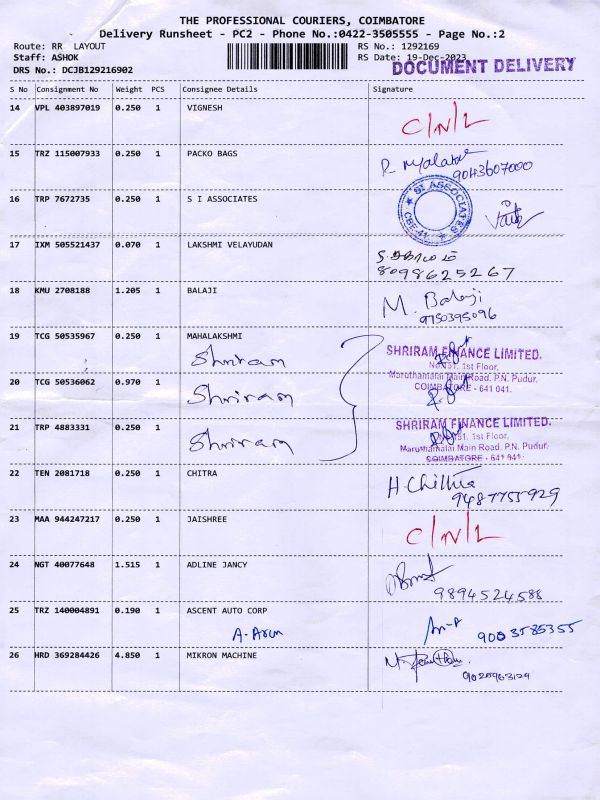 THE PROFESSIONAL COURIERS, COIMBATORE
Delivery Runsheet - PC2 - Phone No.:0422-3505555 - Page No.:2
Route: RR LAYOUT
Staff: ASHOK
DRS No.: DCJB129216902
RS No.: 1292169
RS Date: 19-Dec-2023
DOCUMENT DELIVERY
S No Consignment No Weight PCS Consignee Details Signature
14 VPL 403897019 0.250 1 VIGNESH C/N/L
15 TRZ 115007933 0.250 1 PACKO BAGS
9043607000
16 TRP 7672735 0.250 1 S I ASSOCIATES
SI ASSOCIATES
CBE-41
17 IXM 505521437 0.070 1 LAKSHMI VELAYUDAN
8098625267
18 KMU 2708188 1.205 1 BALAJI M. Balaji
9750395096
19 TCG 50535967 0.250 1 MAHALAKSHMI
Shriram
SHRIRAM FINANCE LIMITED.
1st Floor,
Maruthamalai Main Road, P.N. Pudur,
COIMBATORE - 641 041.
20 TCG 50536062 0.970 1
Shriram
21 TRP 4883331 0.250 1
Shriram
SHRIRAM FINANCE LIMITED.
1st Floor,
Maruthamalai Main Road, P.N. Pudur,
COIMBATORE - 641 041.
22 TEN 2081718 0.250 1 CHITRA H. Chithra
9487755929
23 MAA 944247217 0.250 1 JAISHREE C/N/L
24 NGT 40077648 1.515 1 ADLINE JANCY
9894524588
25 TRZ 140004891 0.190 1 ASCENT AUTO CORP
A- Arun
9003585355
26 HRD 369284426 4.850 1 MIKRON MACHINE
9028963129